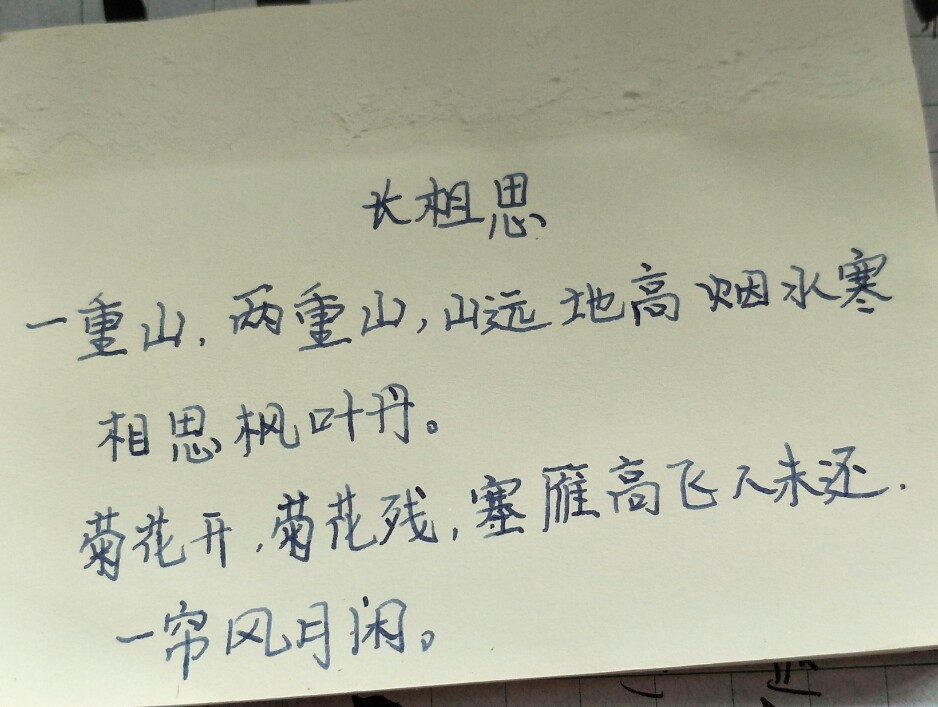 长相思
一重山，两重山，山远地高烟水寒
相思枫叶丹。
菊花开，菊花残，塞雁高飞人未还.
一帘风月闲。